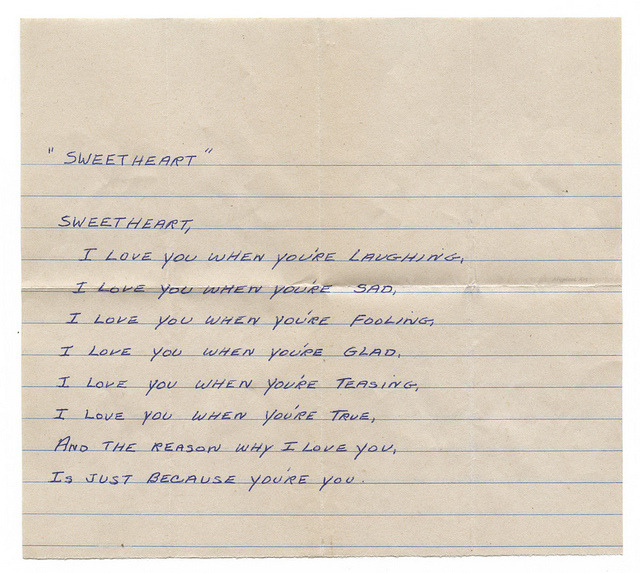 "SWEETHEART"
SWEETHEART,
I LOVE YOU WHEN YOU'RE LAUGHING,
I LOVE YOU WHEN YOU'RE SAD,
I LOVE YOU WHEN YOU'RE FOOLING,
I LOVE YOU WHEN YOU'RE GLAD,
I LOVE YOU WHEN YOU'RE TEASING,
I LOVE YOU WHEN YOU'RE TRUE,
AND THE REASON WHY I LOVE YOU,
IS JUST BECAUSE YOU'RE YOU.